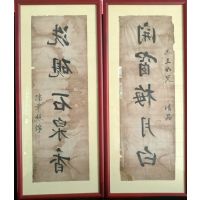 開窗梅月白
洗硯石泉香